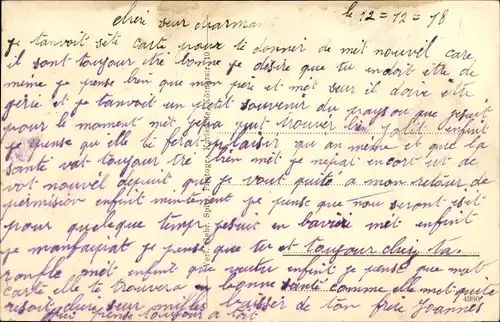 chère seur charman
le 12 = 12 = 18
je tanvoit sète carte pour te donner de mét nouvil care
il sont toujour ètre bonne je désire que tu endoit être de
même je pense bien que mon père et mét seur il doive être
gérie et je tanvoit un petit souvenir du pays ou que jesuit
pour le moment mét jeux put trouvér bin Jolit enfint
je pense qu elle te ferat plaisir qu an même et que la
santé vat toujour tré bien mét je nepat encort ut de
vot nouvel dépuit que je vout quité a mon retour de
permision enfint mintenent je pense que nou seront sét
pour quelque temp jesuit en bavière mét enfint
je pense que tu et toujour cher ta
mét enfint que enfint je pense que mat
carte elle te trouvera en bonne santé comme elle met quite
chère seur milles baisser de ton frère Joannès
qui pense toujour a tat
4990